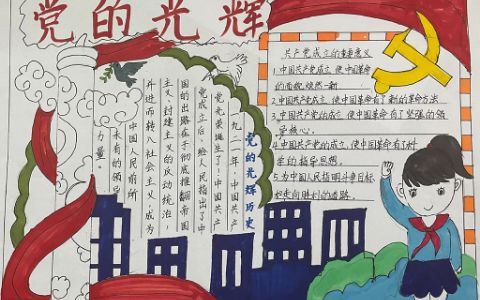 党的光辉
党的光辉历史
一九二一年,中国共产
党光荣诞生了!中国共产
党成立后,给人民指出了中
国的出路在于彻底推翻帝国
主义、封建主义的反动统治,
并进而转入社会主义,成为
中国人民前所
未有的领导
力量。
共产党成立的重要意义
1.中国共产党成立,使中国革命
的面貌焕然一新
2.中国共产党成立,使中国革命有了新的革命方法
3.中国共产党的成立,使中国革命有了坚强的领
导核心。
4.中国共产党的成立,使中国革命有了科
学的指导思想。
5.为中国人民指明斗争目标
和走向胜利的道路。